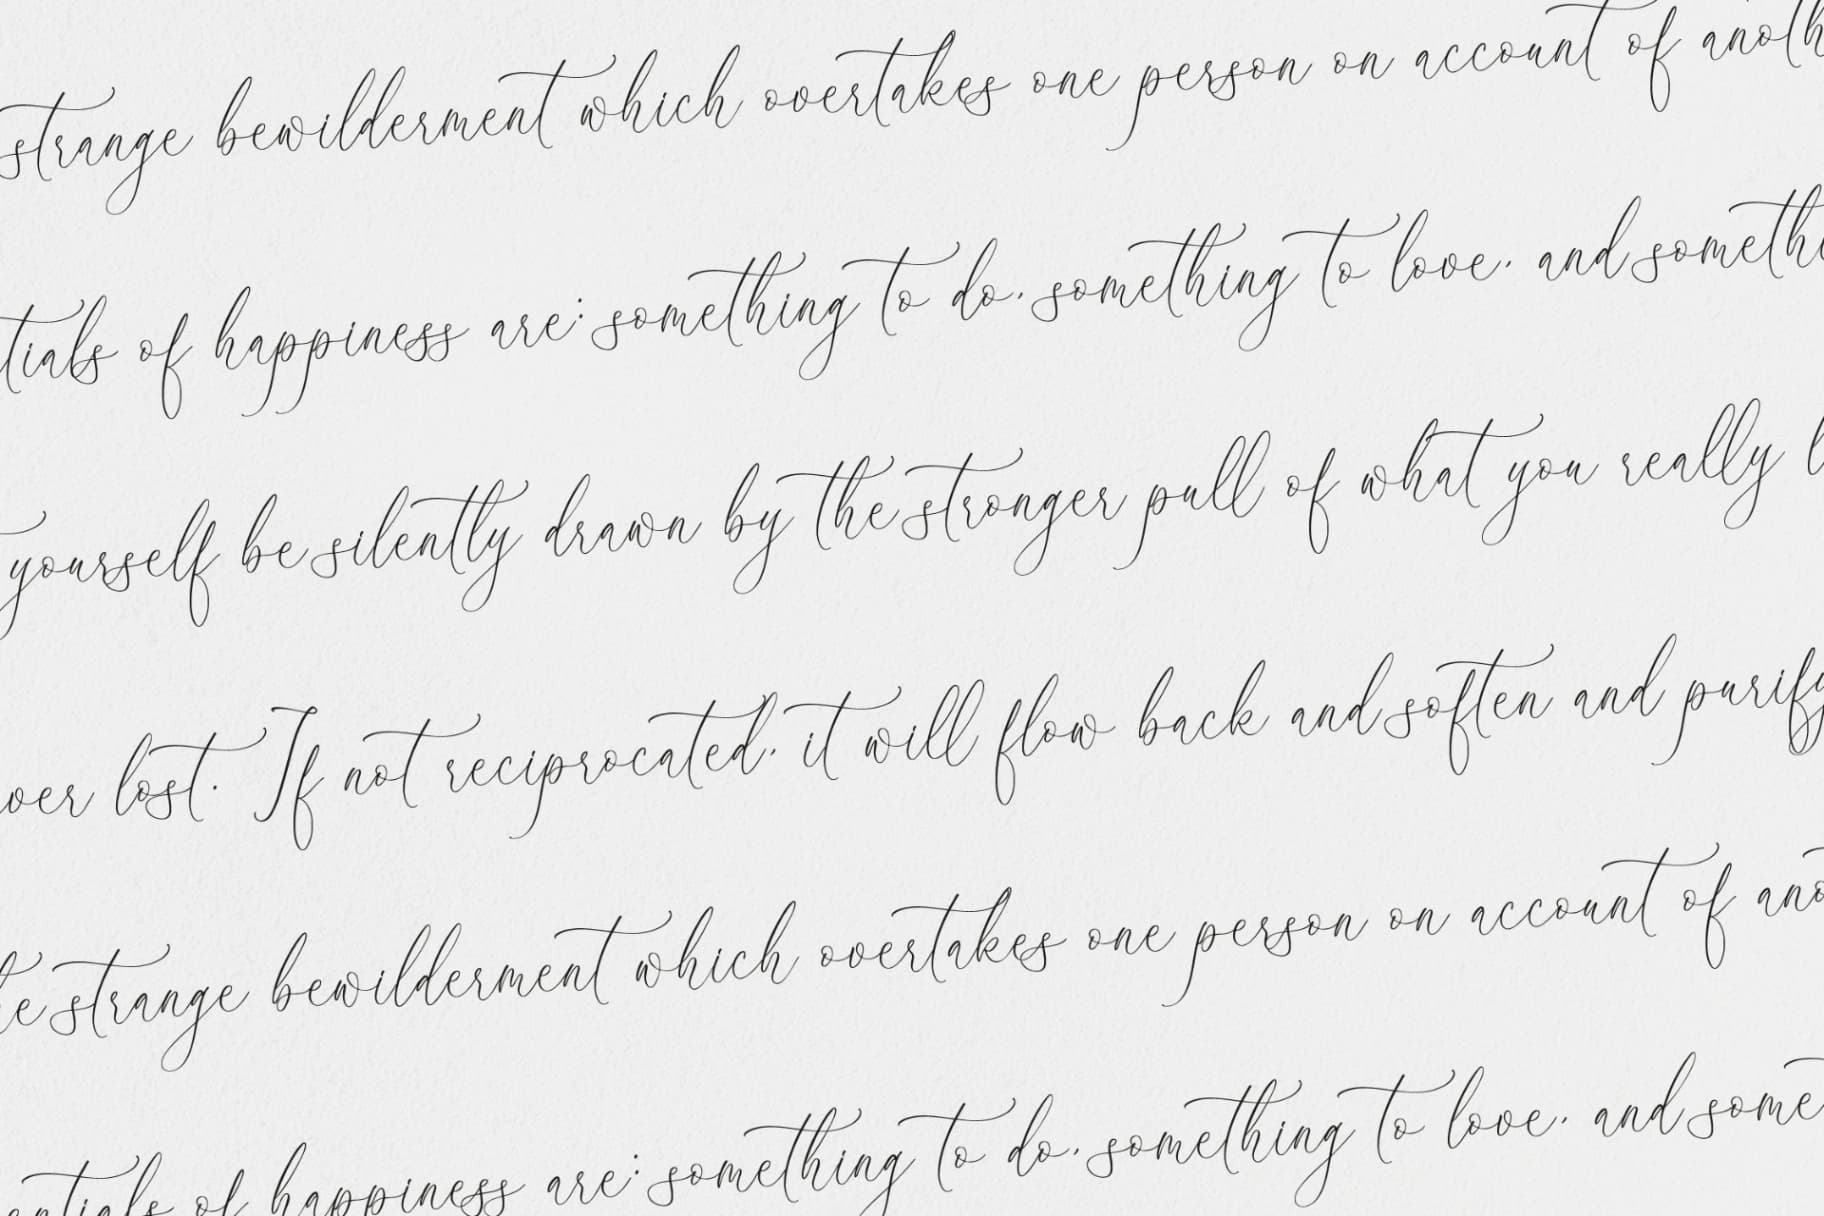 strange bewilderment which overtakes one person on account of anoth
tials of happiness are: something to do, something to love, and somethi
yourself be silently drawn by the stronger pull of what you really l
ver lost. If not reciprocated, it will flow back and soften and purify
he strange bewilderment which overtakes one person on account of ano
entials of happiness are: something to do, something to love, and some